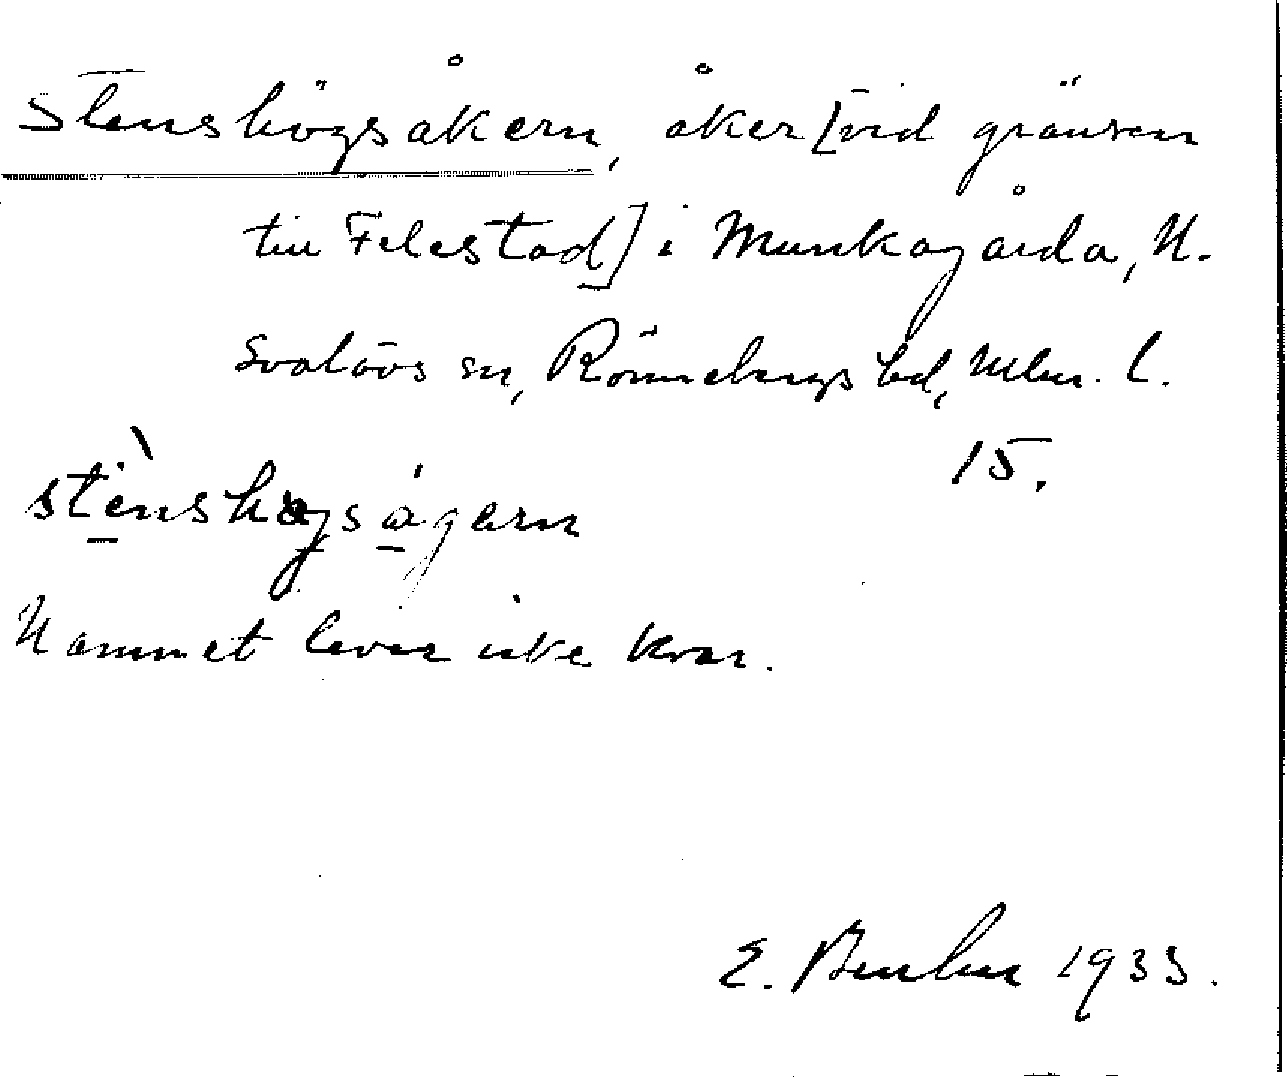 Stenshögsåkern, åker [vid gränsen
till Felestad] i Munkagårda, N.
Svalövs sn, Rönnebergs hd, Mlm. l.
15.
stènshøgsågern
Namnet lever icke kvar.
E. 1933.